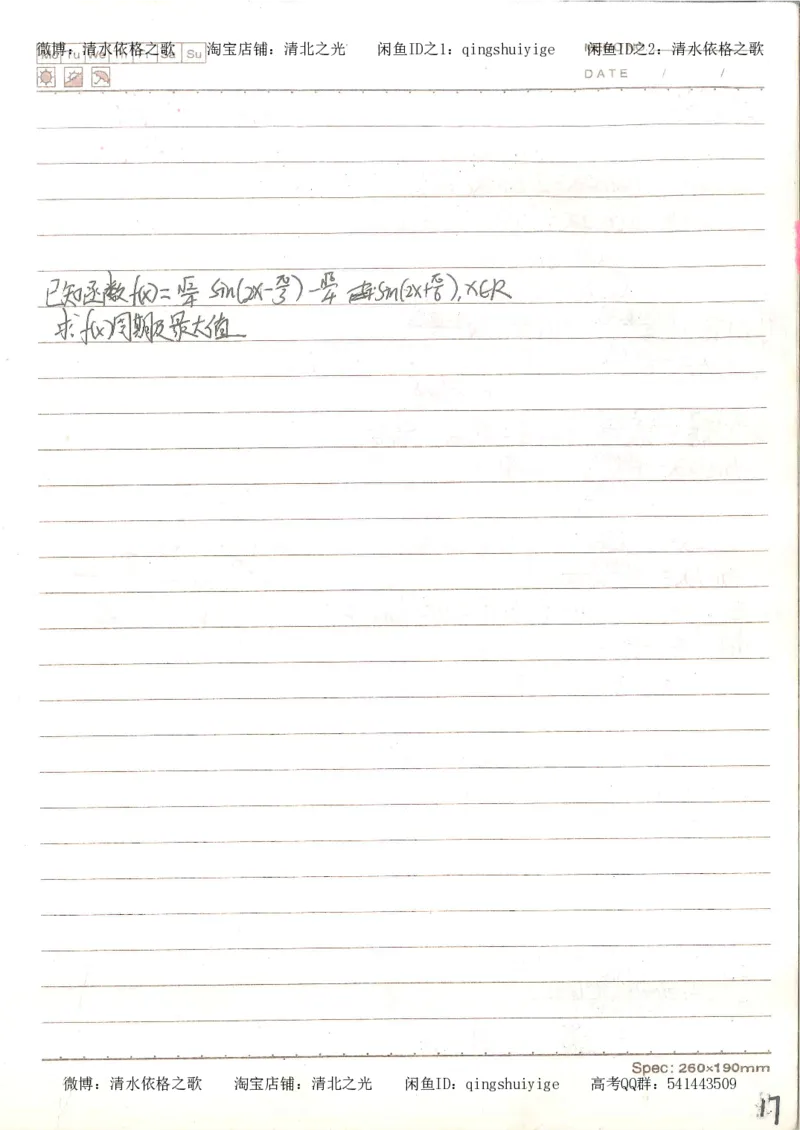 微博：清水依格之歌 淘宝店铺：清北之光 闲鱼ID之1：qingshuiyige 闲鱼ID之2：清水依格之歌
Mo Tu We Th Fr Sa Su
DATE / /
已知函数f(x)=√2/4 sin(2x-π/3)-√6/4 sin(2x+π/6),x∈R
求f(x)周期及最大值
Spec: 260×190mm
微博：清水依格之歌 淘宝店铺：清北之光 闲鱼ID：qingshuiyige 高考QQ群：541443509
17